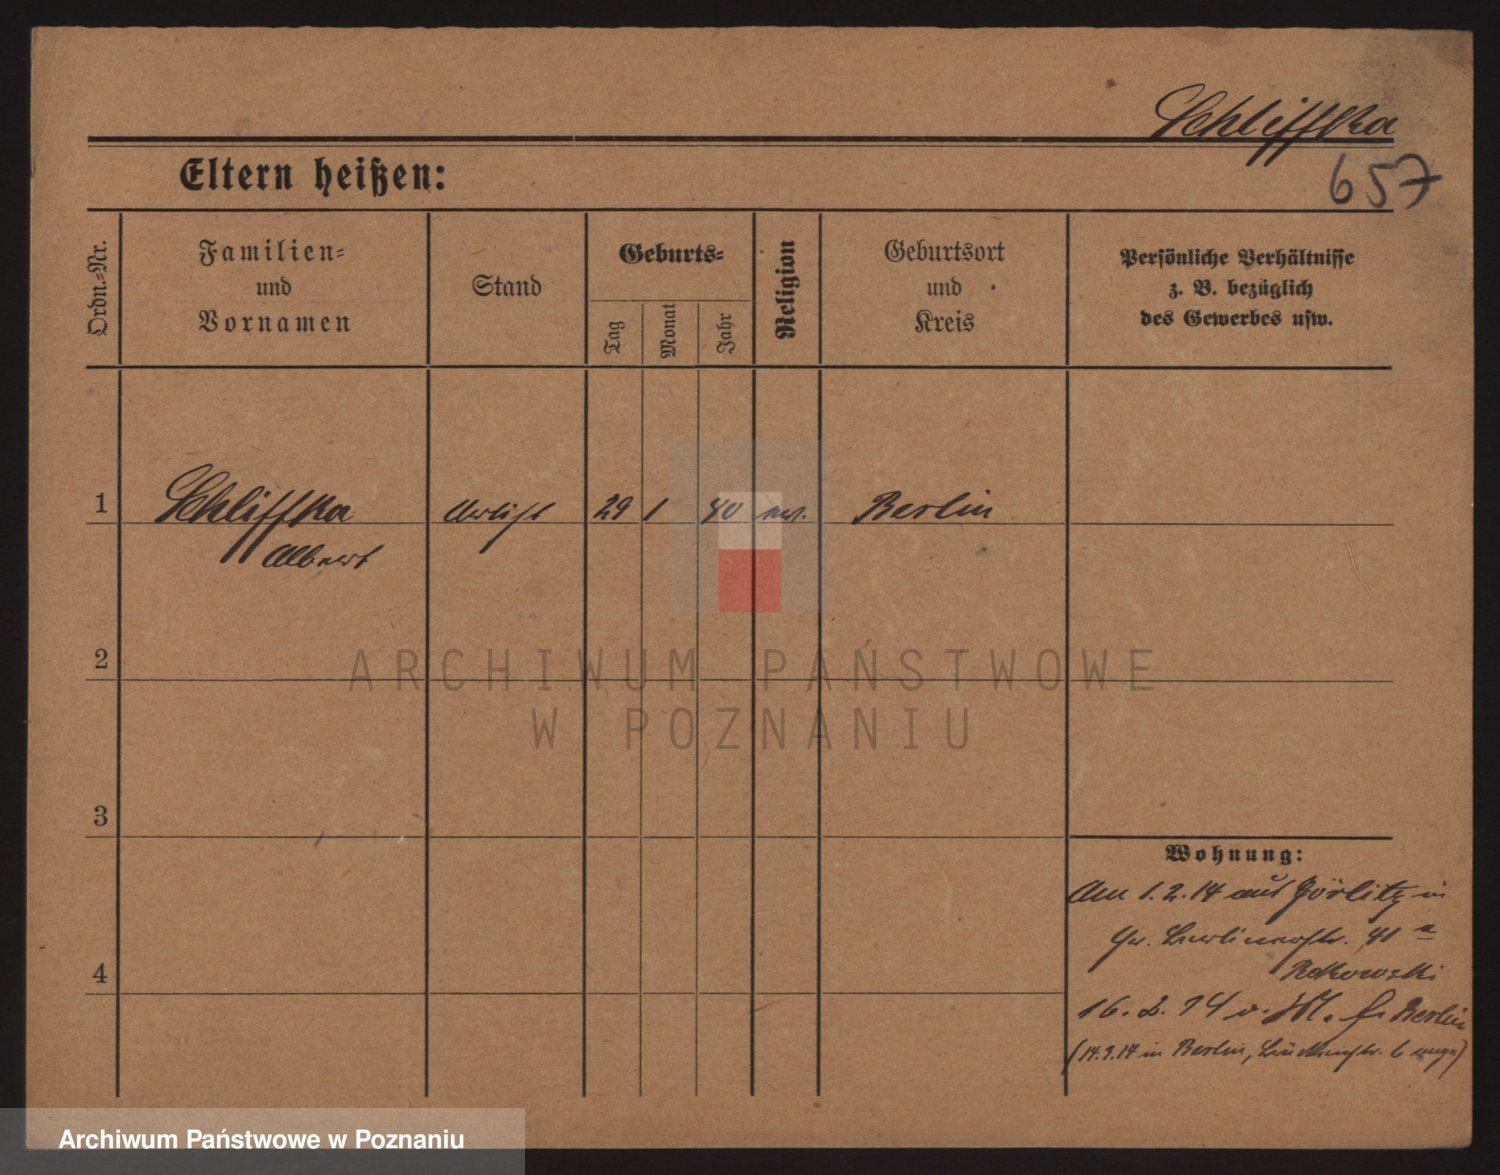 Schliffka
657
Eltern heißen:
Ordn.-Nr.
Familien-
und
Vornamen
Stand
Geburts-
Tag
Monat
Jahr
Religion
Geburtsort
und
Kreis
Persönliche Verhältnisse
z. B. bezüglich
des Gewerbes usw.
1 Schliffka 29 1 Berlin
Albert
2
3
4
Wohnung:
Am 1.2.14 aus Görlitz in
Gr. Berlinerstr. 41 a
Rekowski
16. 2. 14 v. f. Berlin
(14.3.14 in Berlin, 6
ARCHIWUM PAŃSTWOWE
W POZNANIU
Archiwum Państwowe w Poznaniu